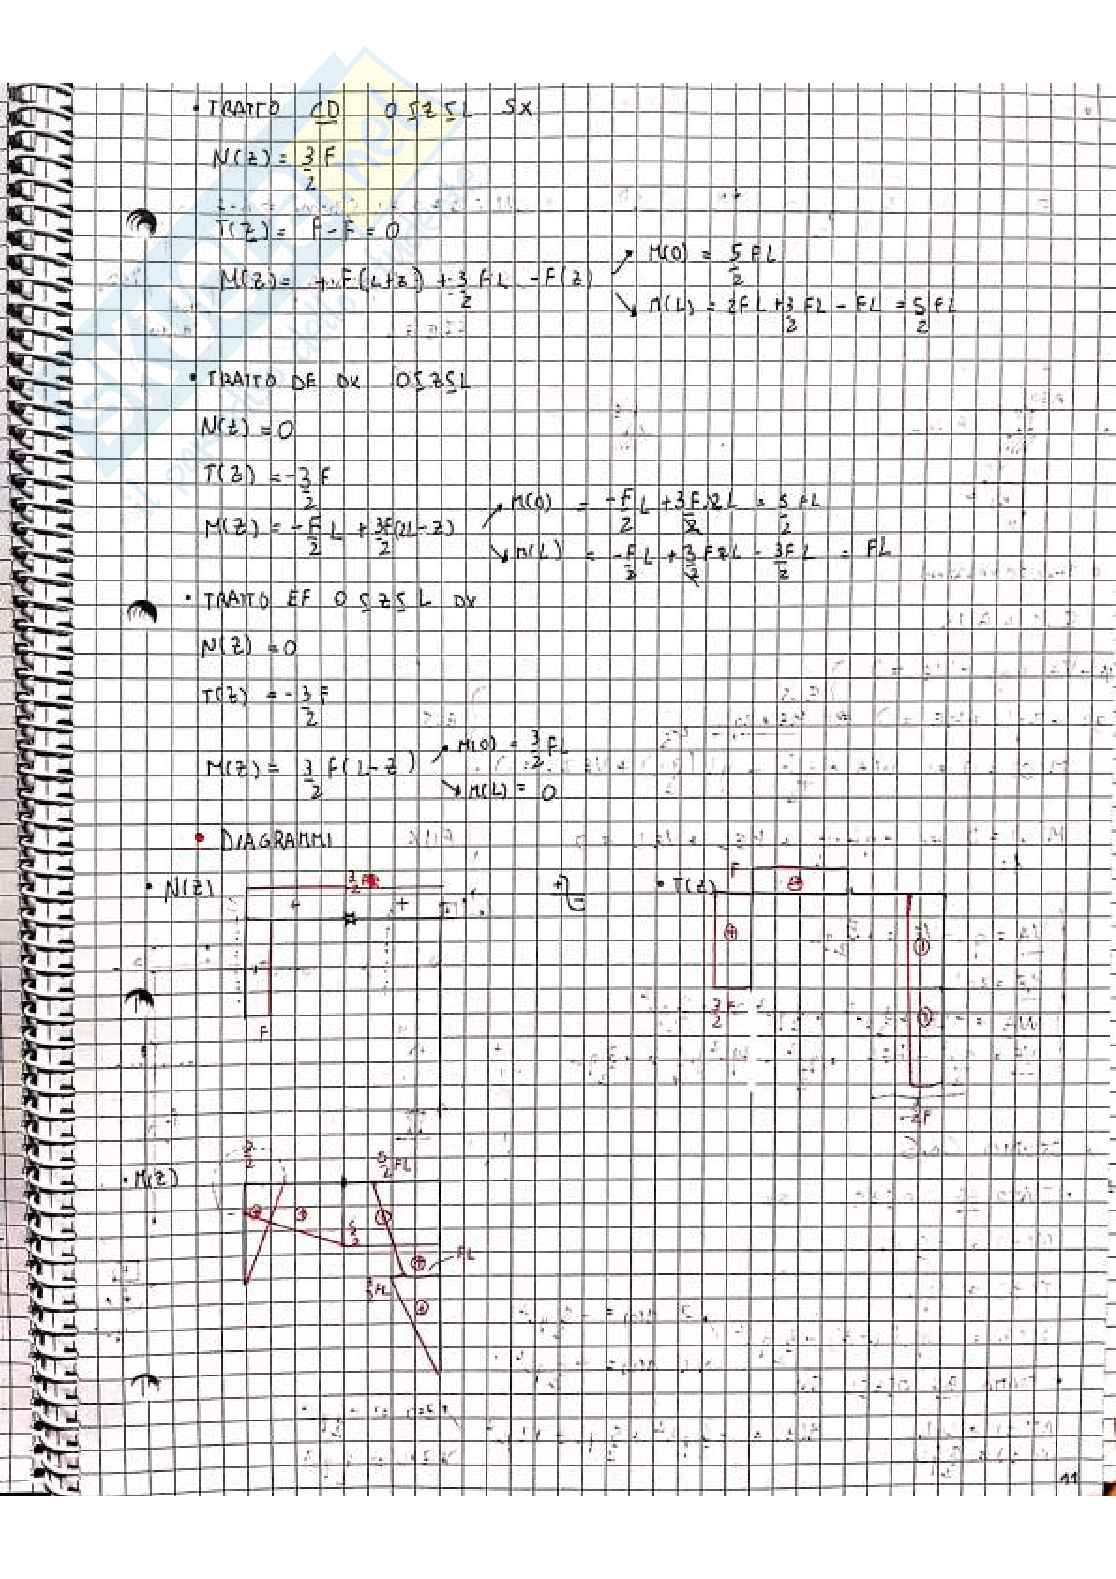 • TRATTO CD 0≤z≤L SX
N(z) = 3/2 F
T(z) = F - F = 0
M(z) = + F(L+z) + 3/2 FL - F(z)
M(0) = 5/2 FL
M(L) = 2FL + 3/2 FL - FL = 5/2 FL
• TRATTO DE DX 0≤z≤L
N(z) = 0
T(z) = -3/2 F
M(z) = -F/2 L + 3F/2 (2L-z)
M(0) = -F/2 L + 3F/2 2L = 5/2 FL
M(L) = -F/2 L + 3/2 F2L - 3F/2 L = FL
• TRATTO EF 0≤z≤L DX
N(z) = 0
T(z) = -3/2 F
M(z) = 3/2 F(L-z)
M(0) = 3/2 FL
M(L) = 0
• DIAGRAMMI
• N(z)
3/2 F
+ +
F
• T(z)
F
3/2 F
-3/2 F
• M(z)
3/2
5/2 FL
5/2
FL
3/2 FL
11